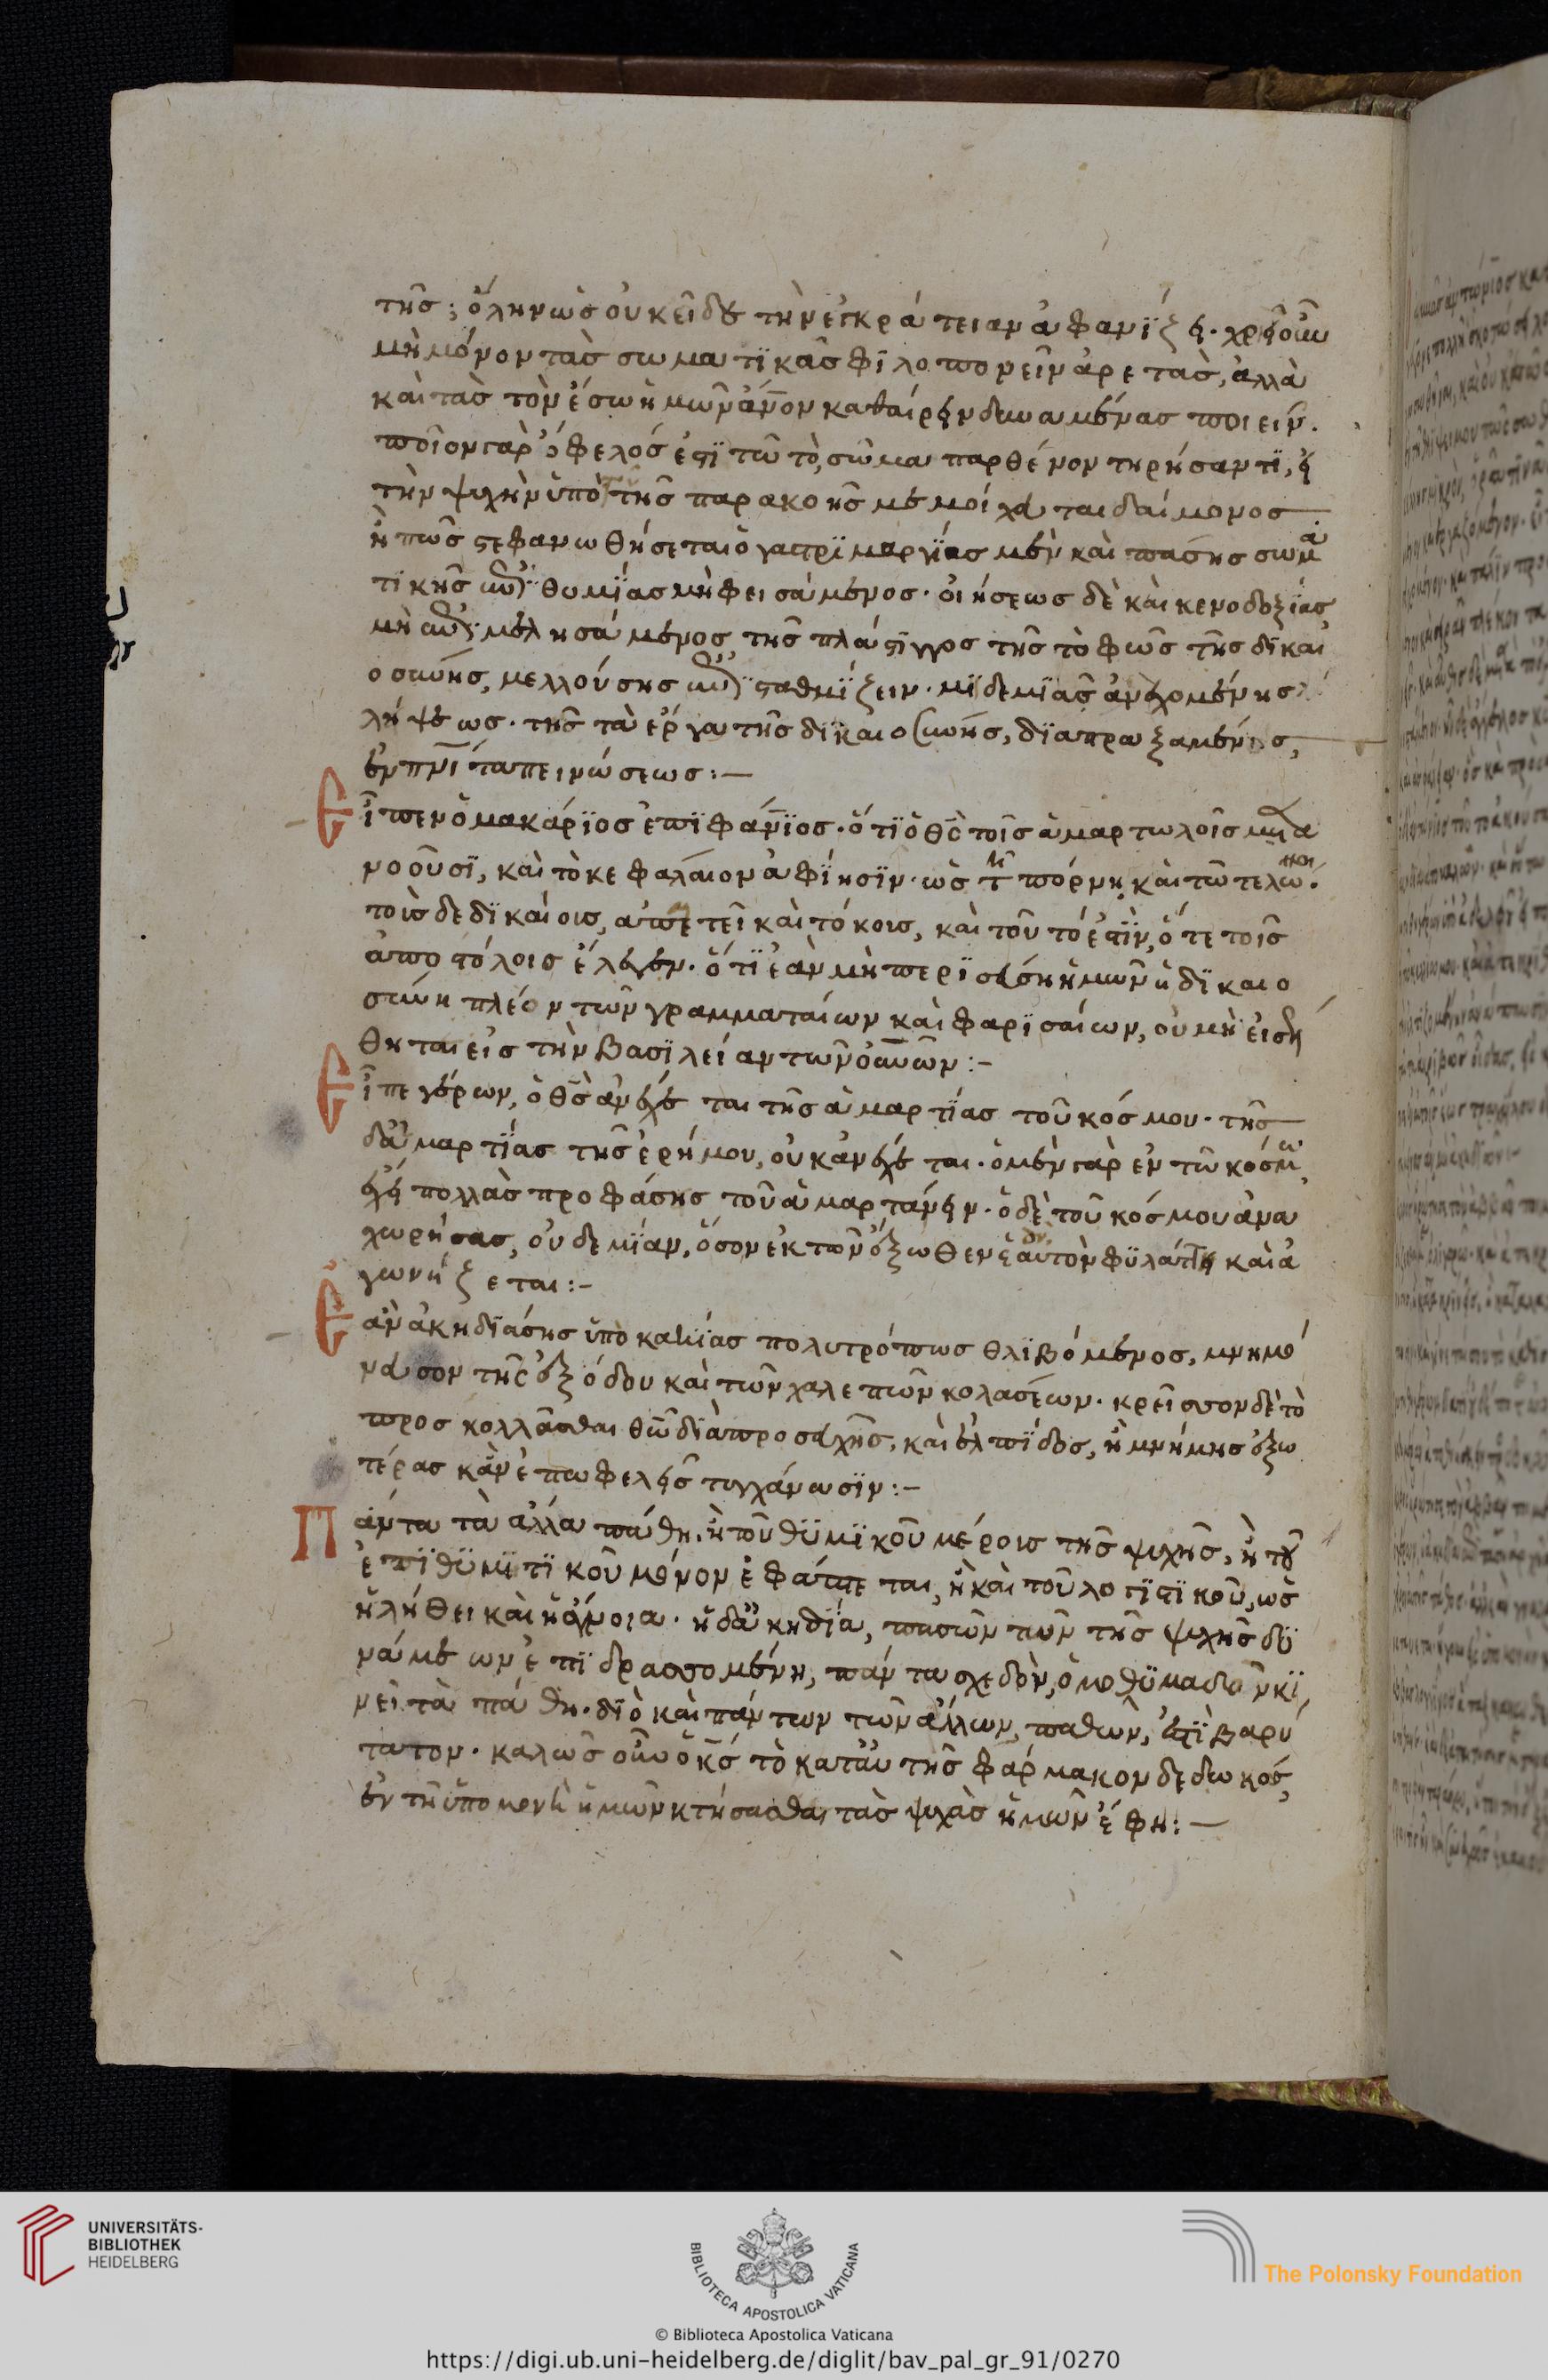 της; ὅλην ὡς οὐκ εἶδε τὴν ἐγκράτειαν ἀφανίζει. χρὴ οὖν
μὴ μόνον τὰς σωματϊκὰς φϊλοπονεῖν ἀρετὰς, ἀλλὰ
καὶ τὰς τὸν ἔσω ἡμῶν ἄνον καθαίρειν δυναμένας ποιεῖν.
ποῖον γὰρ ὄφελός ἐστϊ τῶ τὸ σῶμα παρθένον τηρήσαντϊ, εἰ
τὴν ψυχὴν ὑπὸ τῆς παρακοῆς μεμοίχευται δαίμονος.
ἢ πῶς στεφανωθήσεται ὁ γαστρϊμαργΐας μὲν καὶ πάσης σωμα
τϊκῆς ἐπϊθυμΐας μὴ φεισάμενος. οἰήσεως δὲ καὶ κενοδοξΐας
μὴ ἐπϊμελησάμενος, τῆς πλάστϊγγος τῆς τὸ φῶς τῆς δϊκαι
οσύνης, μελλούσης σταθμΐζειν. μϊδεμϊᾶς ἀνεχομένης
λήψεως. τῆς τὰ ἔργα τῆς δϊκαιοσύνης, δϊαπραξαμένης,
ἐν πνϊ ταπεινώσεως:—
Εἶπεν ὁ μακάρϊος ἐπϊφάνϊος. ὅτϊ ὁ θς τοῖς ἁμαρτωλοῖς μετα
νοοῦσϊ, καὶ τὸ κεφάλαιον ἀφΐησϊν. ὡς τῆ πόρνη καὶ τῶ τελώνη.
τοῖς δε δϊκαίοις, ἀπαιτεῖ καὶ τόκους, καὶ τοῦτό ἐστϊν, ὅτε τοῖς
ἀποστόλοις ἔλεγεν. ὅτϊ ἐὰν μὴ περϊσεύση ἡμῶν ἡ δϊκαιο
σύνη πλέον τῶν γραμματαίων καὶ φαρϊσαίων, οὐ μὴ εἰσέλ
θηται εἰς τὴν βασϊλείαν τῶν οὐνῶν:-
Εἶπε γέρων, ὁ θς ἀνέχεται τῆς ἁμαρτΐας τοῦ κόσμου. τῆς
δἁμαρτΐας τῆς ἐρήμου, οὐκ ἀνέχεται. ὁ μὲν γὰρ ἐν τῶ κόσμω,
ἔχει πολλὰς προφάσης τοῦ ἁμαρτάνειν. ὁ δὲ τοῦ κόσμου ἀνα
χωρήσας, οὐδεμΐαν, ὅσον ἐκ τῶν ἔξωθεν ἑαυτὸν φϋλάττει καὶ ἀ
γωνήζεται:-
Εὰν ἀκηδϊάσης ὑπὸ κακΐας πολυτρόπως θλιβόμενος, μνημό
νευσον τῆς ἐξόδου καὶ τῶν χαλεπῶν κολασέων. κρεῖσσον δὲ τὸ
προσκολλᾶσθαι θῶ δϊὰ προσευχῆς, καὶ ἐλπΐδος, ἢ μνήμης ἐξω
τέρας κἂν ἐπωφελεῖς τυγχάνωσϊν:-
Πάντα τὰ ἄλλα πάθη, ἢ τοῦ θϋμϊκοῦ μέρους τῆς ψυχῆς, ἢ τοῦ
ἐπϊθϋμϊτϊκοῦ μόνον ἐφάπτεται, ἢ καὶ τοῦ λογϊστϊκοῦ, ὡς
ἡ λήθει καὶ ἡ ἄγνοια. ἡ δἀκηδΐα, πασῶν τῶν τῆς ψυχῆς δϋ
νάμεων ἐπϊδρασσομένη, πάντα σχεδὸν, ὁμοθϋμαδὸν κϊ
νεῖ τὰ πάθη. δϊὸ καὶ πάντων τῶν ἄλλων, παθῶν, ἐστϊ βαρύ
τατον. καλῶς οὖν ὁ κς τὸ κατ' αὐτῆς φάρμακον δεδωκός,
ἐν τῆ ὑπομονῆ ἡμῶν κτήσασθαι τὰς ψυχὰς ἡμῶν ἔφη:—
UNIVERSITÄTS-
BIBLIOTHEK
HEIDELBERG
BIBLIOTECA APOSTOLICA VATICANA
© Biblioteca Apostolica Vaticana
The Polonsky Foundation
https://digi.ub.uni-heidelberg.de/diglit/bav_pal_gr_91/0270